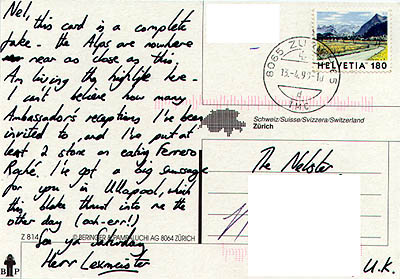 Nel,
this card is a complete
fake - the Alps are nowhere
near as close as this.
Am living the highlife here -
I can't believe how many
Ambassadors receptions I've been
invited to, and I've put at
least 2 stone on eating Ferrero
Roché. I've got a big sausage
for you in Ullapool, which
this bloke thrust into me the
other day (ooh-err!)
See ya Saturday
Herr Lexmeister
Z 814
© BERINGER & PAMPALUCHI AG 8064 ZÜRICH
BP
8065 ZÜRICH
HELVETIA 180
Schweiz/Suisse/Svizzera/Switzerland
Zürich
The Nelster
U.K.